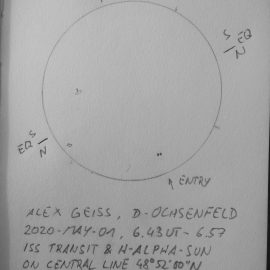 S EQ
N
EQ S
N
ENTRY
ALEX GEISS, D-OCHSENFELD
2020-MAY-01, 6.43UT-6.57
ISS TRANSIT & H-ALPHA-SUN
ON CENTRAL LINE 48°52'00"N